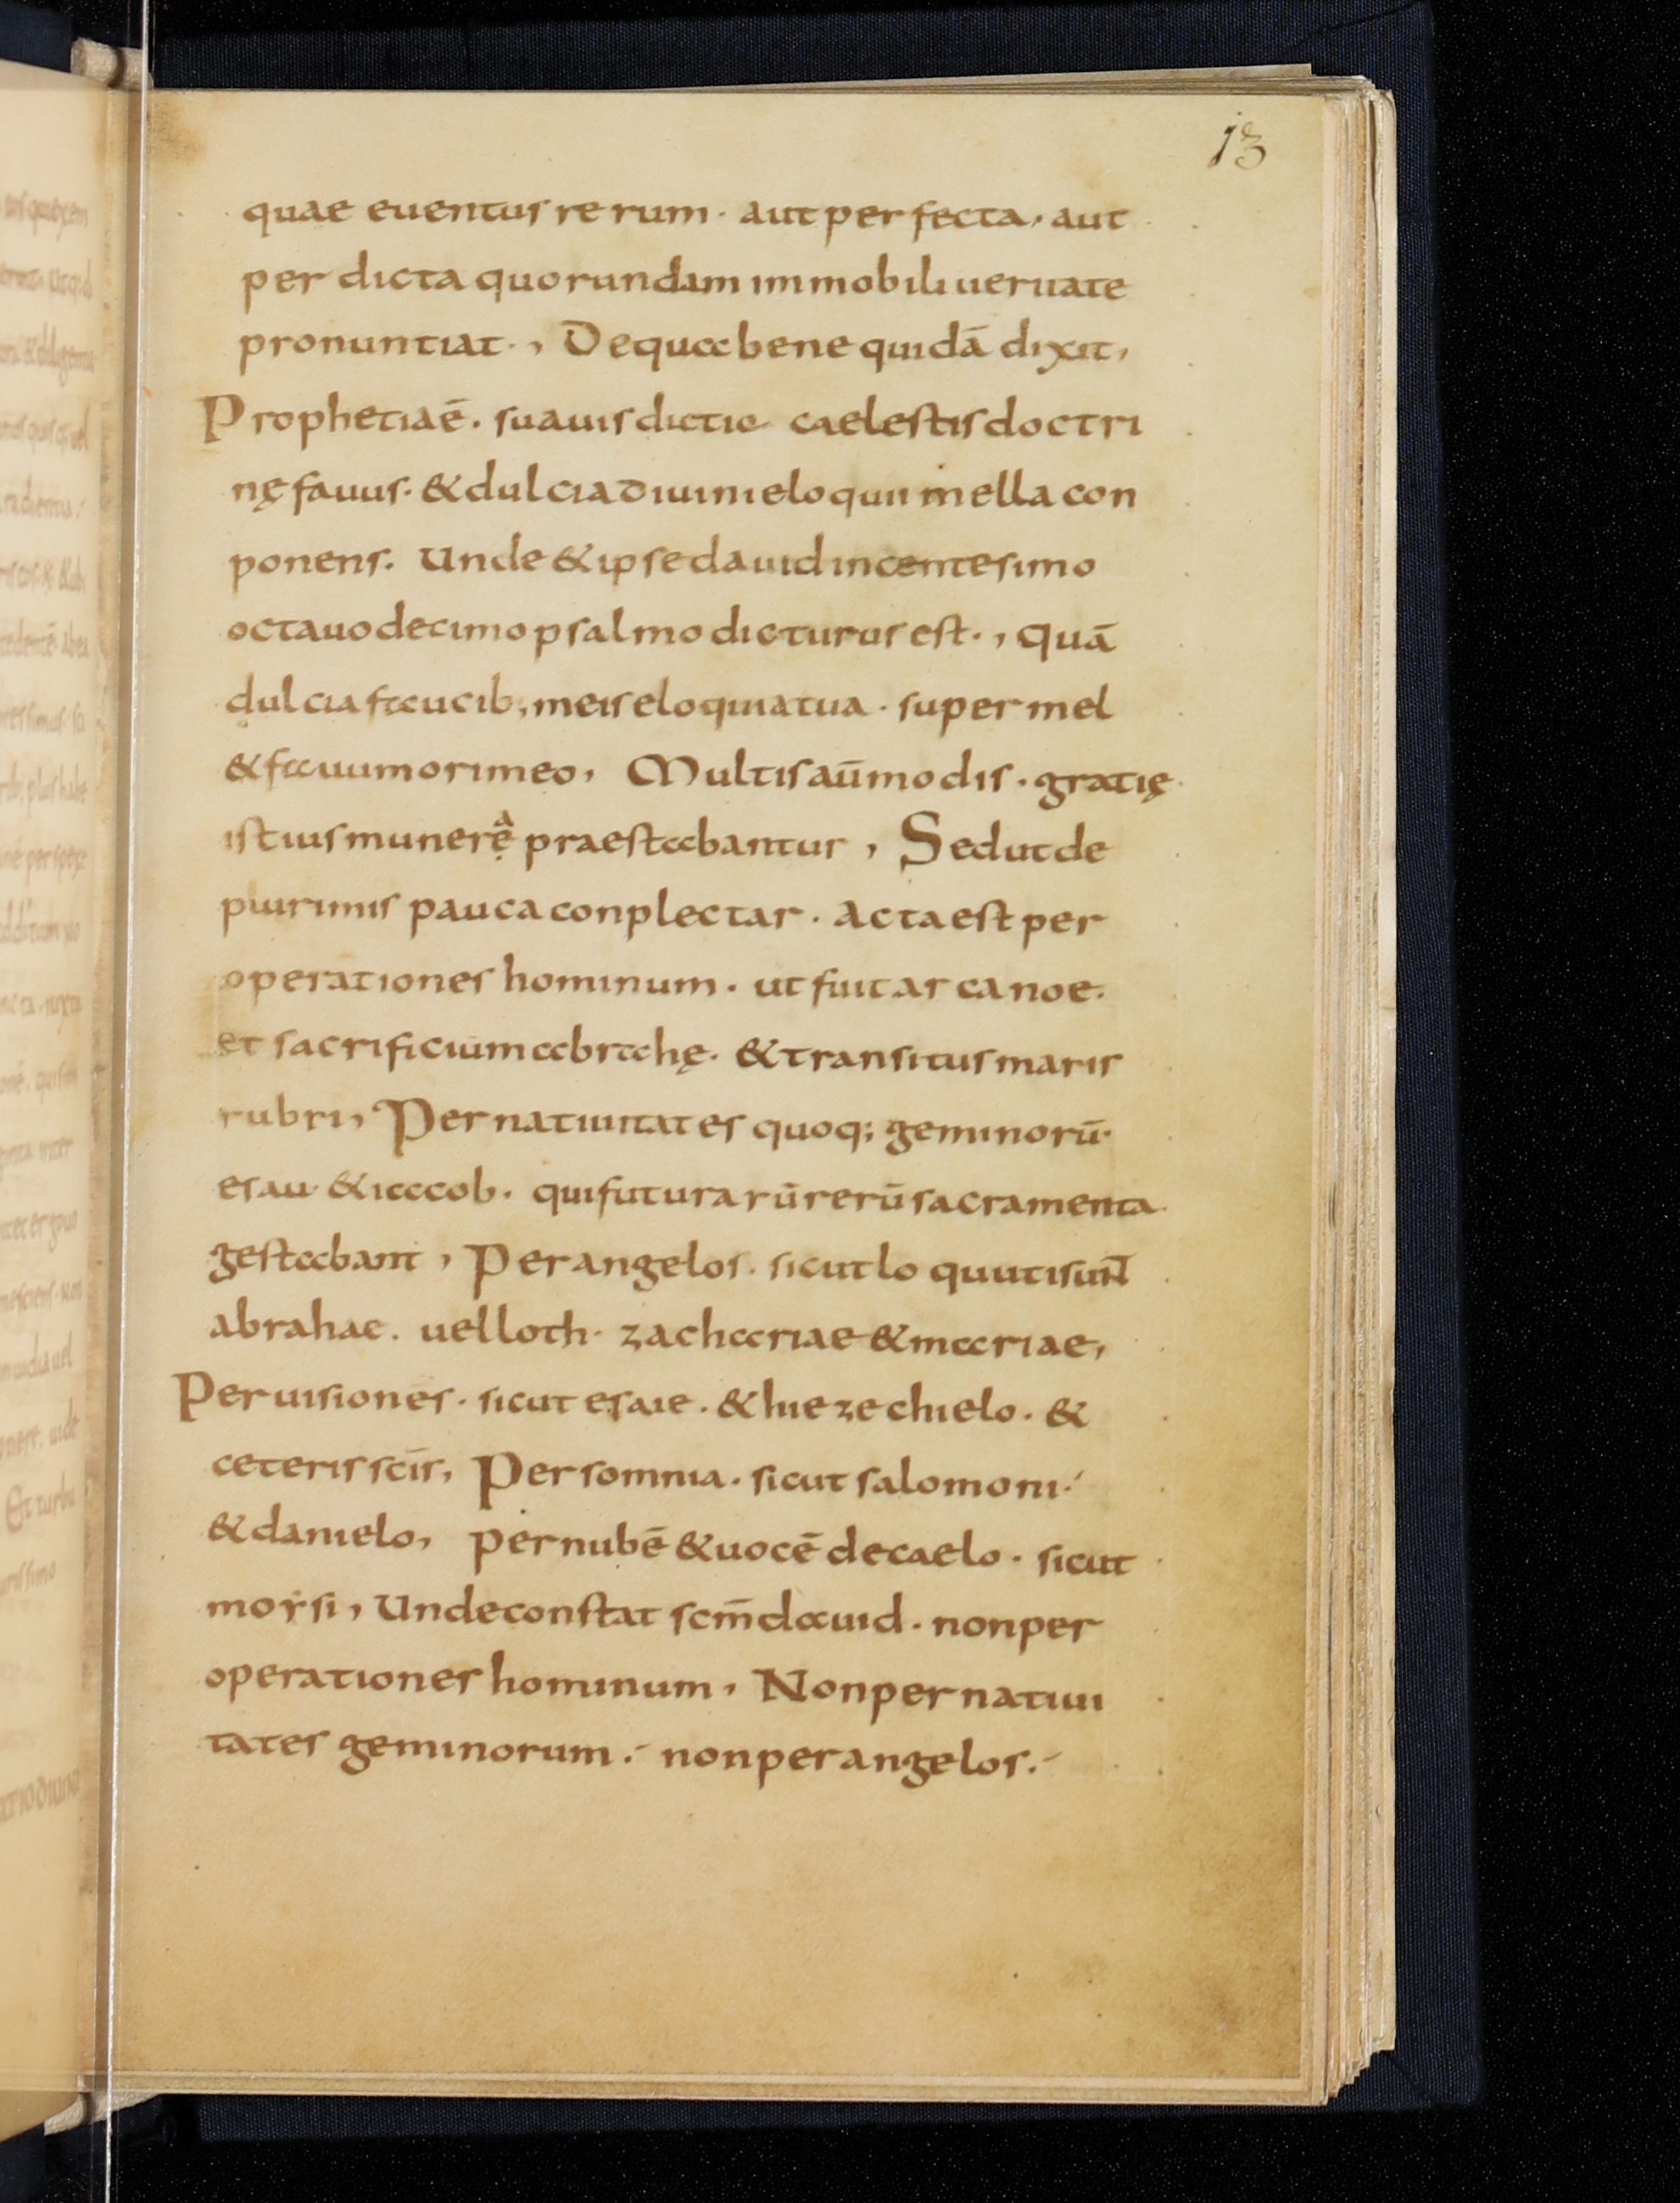 13
quae euentus rerum · aut per fecta, aut
per dicta quorundam immobili ueritate
pronuntiat ·, De qua bene quidā dixit,
Prophetia ē · suauis dictio caelestis doctri
nę fauus · & dulcia diuini eloquii mella con
ponens. Unde & ipse dauid in centesimo
octauo decimo psalmo dicturus est ·, Quā
dulcia faucib; meis eloquia tua · super mel
& fauum ori meo, Multis aū modis · gratię
istius munerę̄ᵃ praestabantur, Sed ut de
plurimis pauca conplectar · Acta est per
operationes hominum · ut fuit arca noe.
et sacrificium abrahę · & transitus maris
rubri, Per natiuitates quoq; geminorū ·
esau & iacob · qui futurarū rerū sacramenta
gestabant, Per angelos · sicut locuuti sunt
abrahae. uel loth · zachariae & mariae,
Per uisiones · sicut esaie · & hiezechielo · &
ceteris scīs, Per somnia · sicut salomoni ·
& danielo, per nubē & uocē de caelo · sicut
moysi, Unde constat scm̄ dauid · non per
operationes hominum, Non per natiui
tates geminorum. non per angelos.